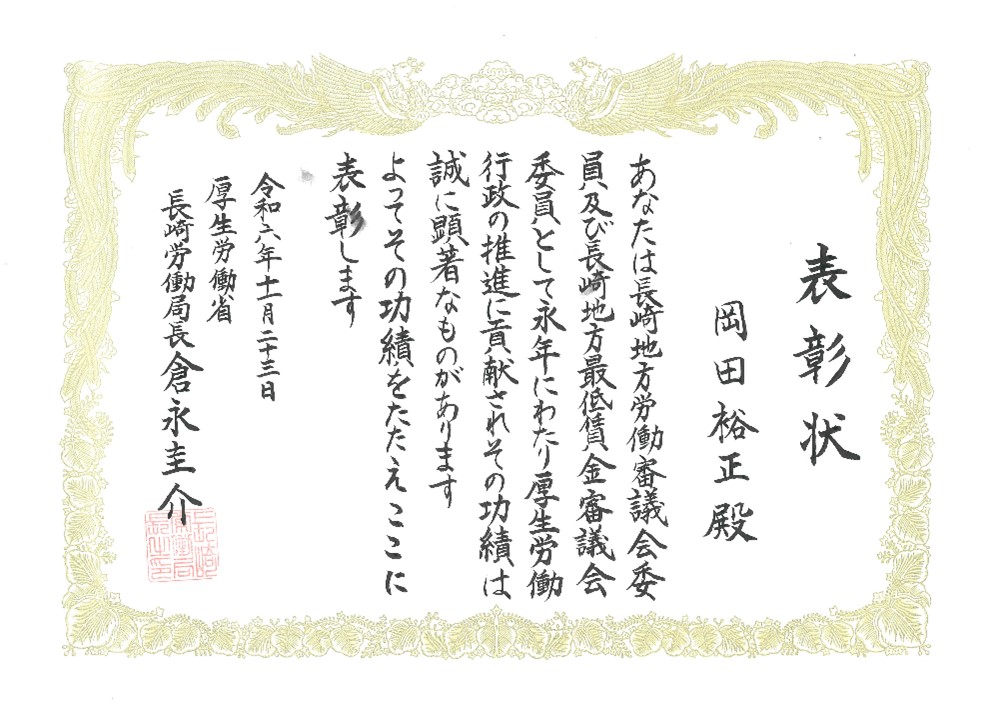 表彰状
岡田裕正殿
あなたは長崎地方労働審議会委
員及び長崎地方最低賃金審議会
委員として永年にわたり厚生労働
行政の推進に貢献されその功績は
誠に顕著なものがあります
よってその功績をたたえここに
表彰します
令和六年十一月二十三日
厚生労働省
長崎労働局長倉永圭介
長崎
労働局
長之印